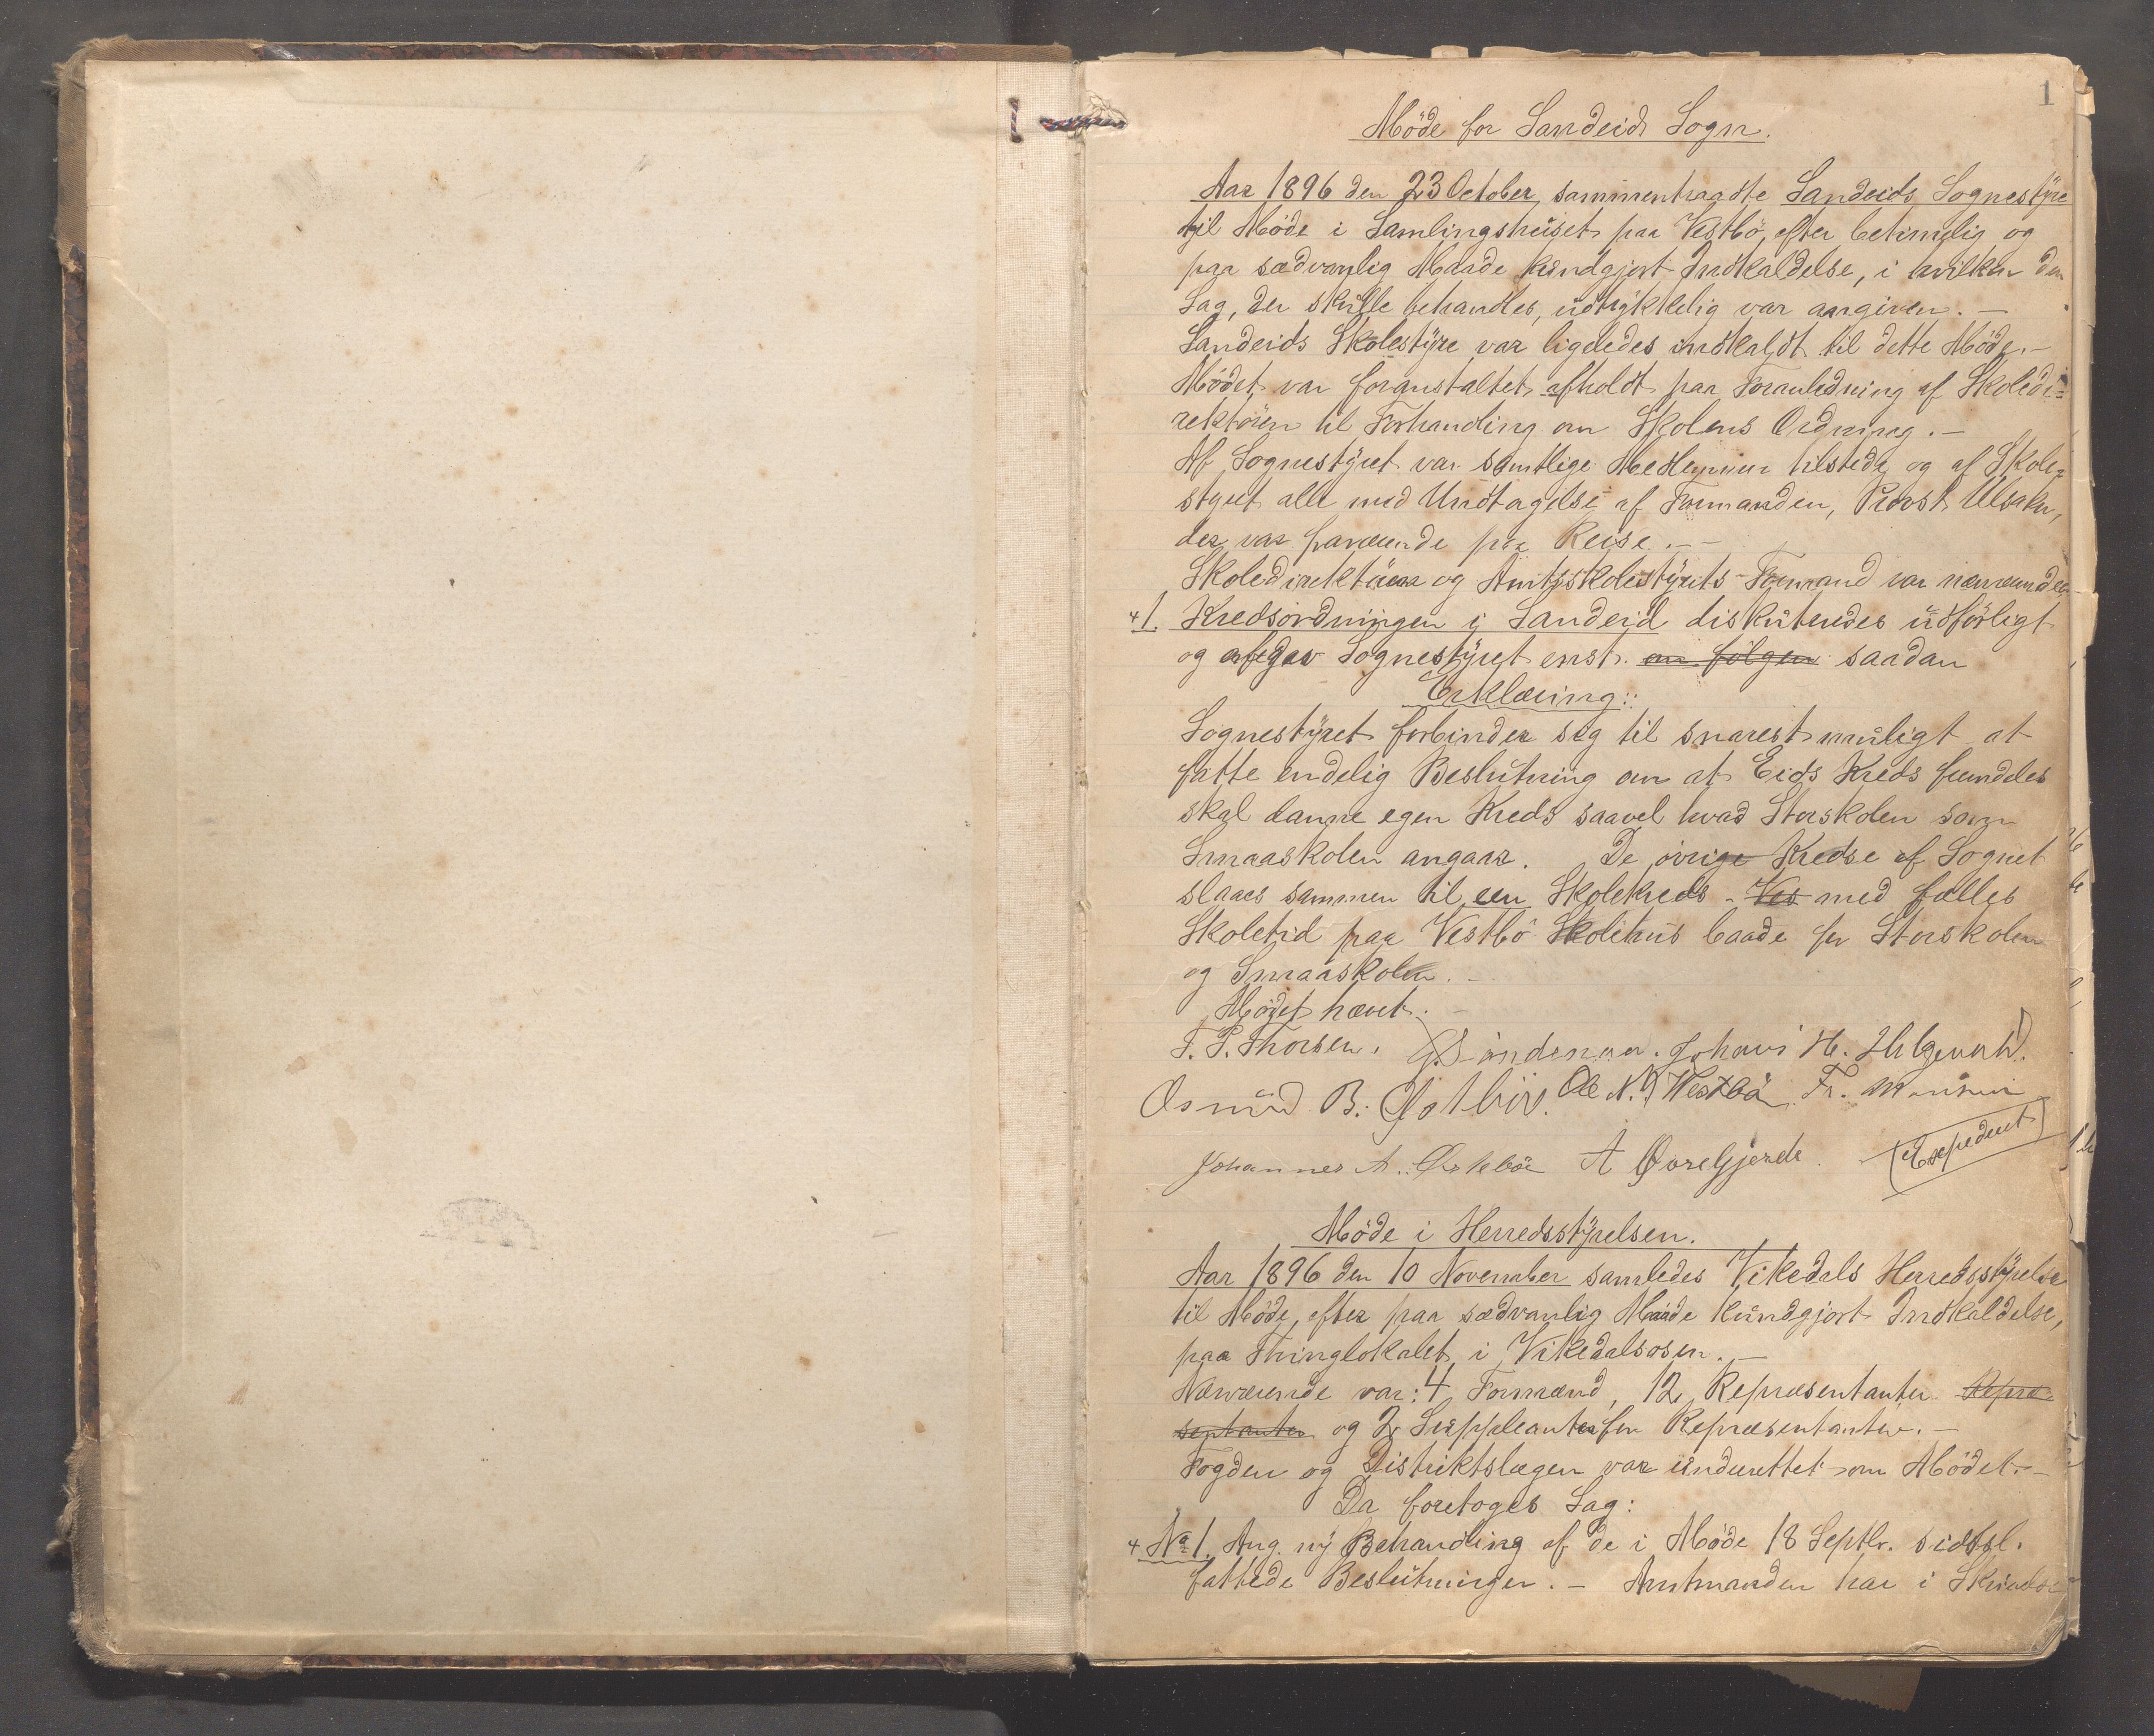 1
Møde for Sandeid Sogn.
Aar 1896 den 23 October sammentraadte Sandeids Sognestyre
til Møde i Samlingshuset paa Vestbø, efter betimelig og
paa sædvanlig Maade kundgjort Indkaldelse, i hvilken den
Sag, der skulle behandles, udtrykkelig var angiven. –
Sandeids Skolestyre var ligeledes indkaldt til dette Møde. –
Mødet var foranstaltet afholdt paa Foranledning af Skoledi=
rektøren til Forhandling om Skolens Ordning. –
Af Sognestyret var samtlige Medlemmer tilstede og af Skole-
styret alle med Undtagelse af Formanden, Provst
der var fraværende paa Reise. –
Skoledirektøren og Amtsskolestyrets Formand var nærværende.
+ 1. Kredsordningen i Sandeid diskuteredes udførligt
og afgav Sognestyret enst. en følgen saadan
Erklæring:
Sognestyret forbinder sig til snarest muligt at
fatte endelig Beslutning om at Eids Kreds fremdeles
skal danne egen Kreds saavel hvad Storskolen som
Smaaskolen angaar. De øvrige Kredse af Sognet
slaaes sammen til een Skolekreds – Ves med fælles
Skoletid paa Vestbø Skolehus baade for Storskolen
og Smaaskolen. –
Mødet hævet. –
T. P. Thorsen. Johans H.
Osmund B. Ole N. Westbø Fr.
Johannes A. A Øvregjerde.
(Expederet)
Møde i Herredsstyrelsen.
Aar 1896 den 10 November samledes Vikedals Herredsstyrelse
til Møde, efter paa sædvanlig Maade kundgjort Indkaldelse,
paa Thinglokalet i Vikedalsosen. –
Nærværende var: 4 Formænd, 12 Repræsentanter Repræ-
sentanter og 2 Suppleanter for Repræsentanter. –
Fogden og Distriktslægen var underrettet om Mødet. –
Da foretoges Sag:
+ No 1. Ang. ny Behandling af de i Møde 18 Septbr. sidstl.
fattede Beslutninger. – Amtmanden har i Skrivelse